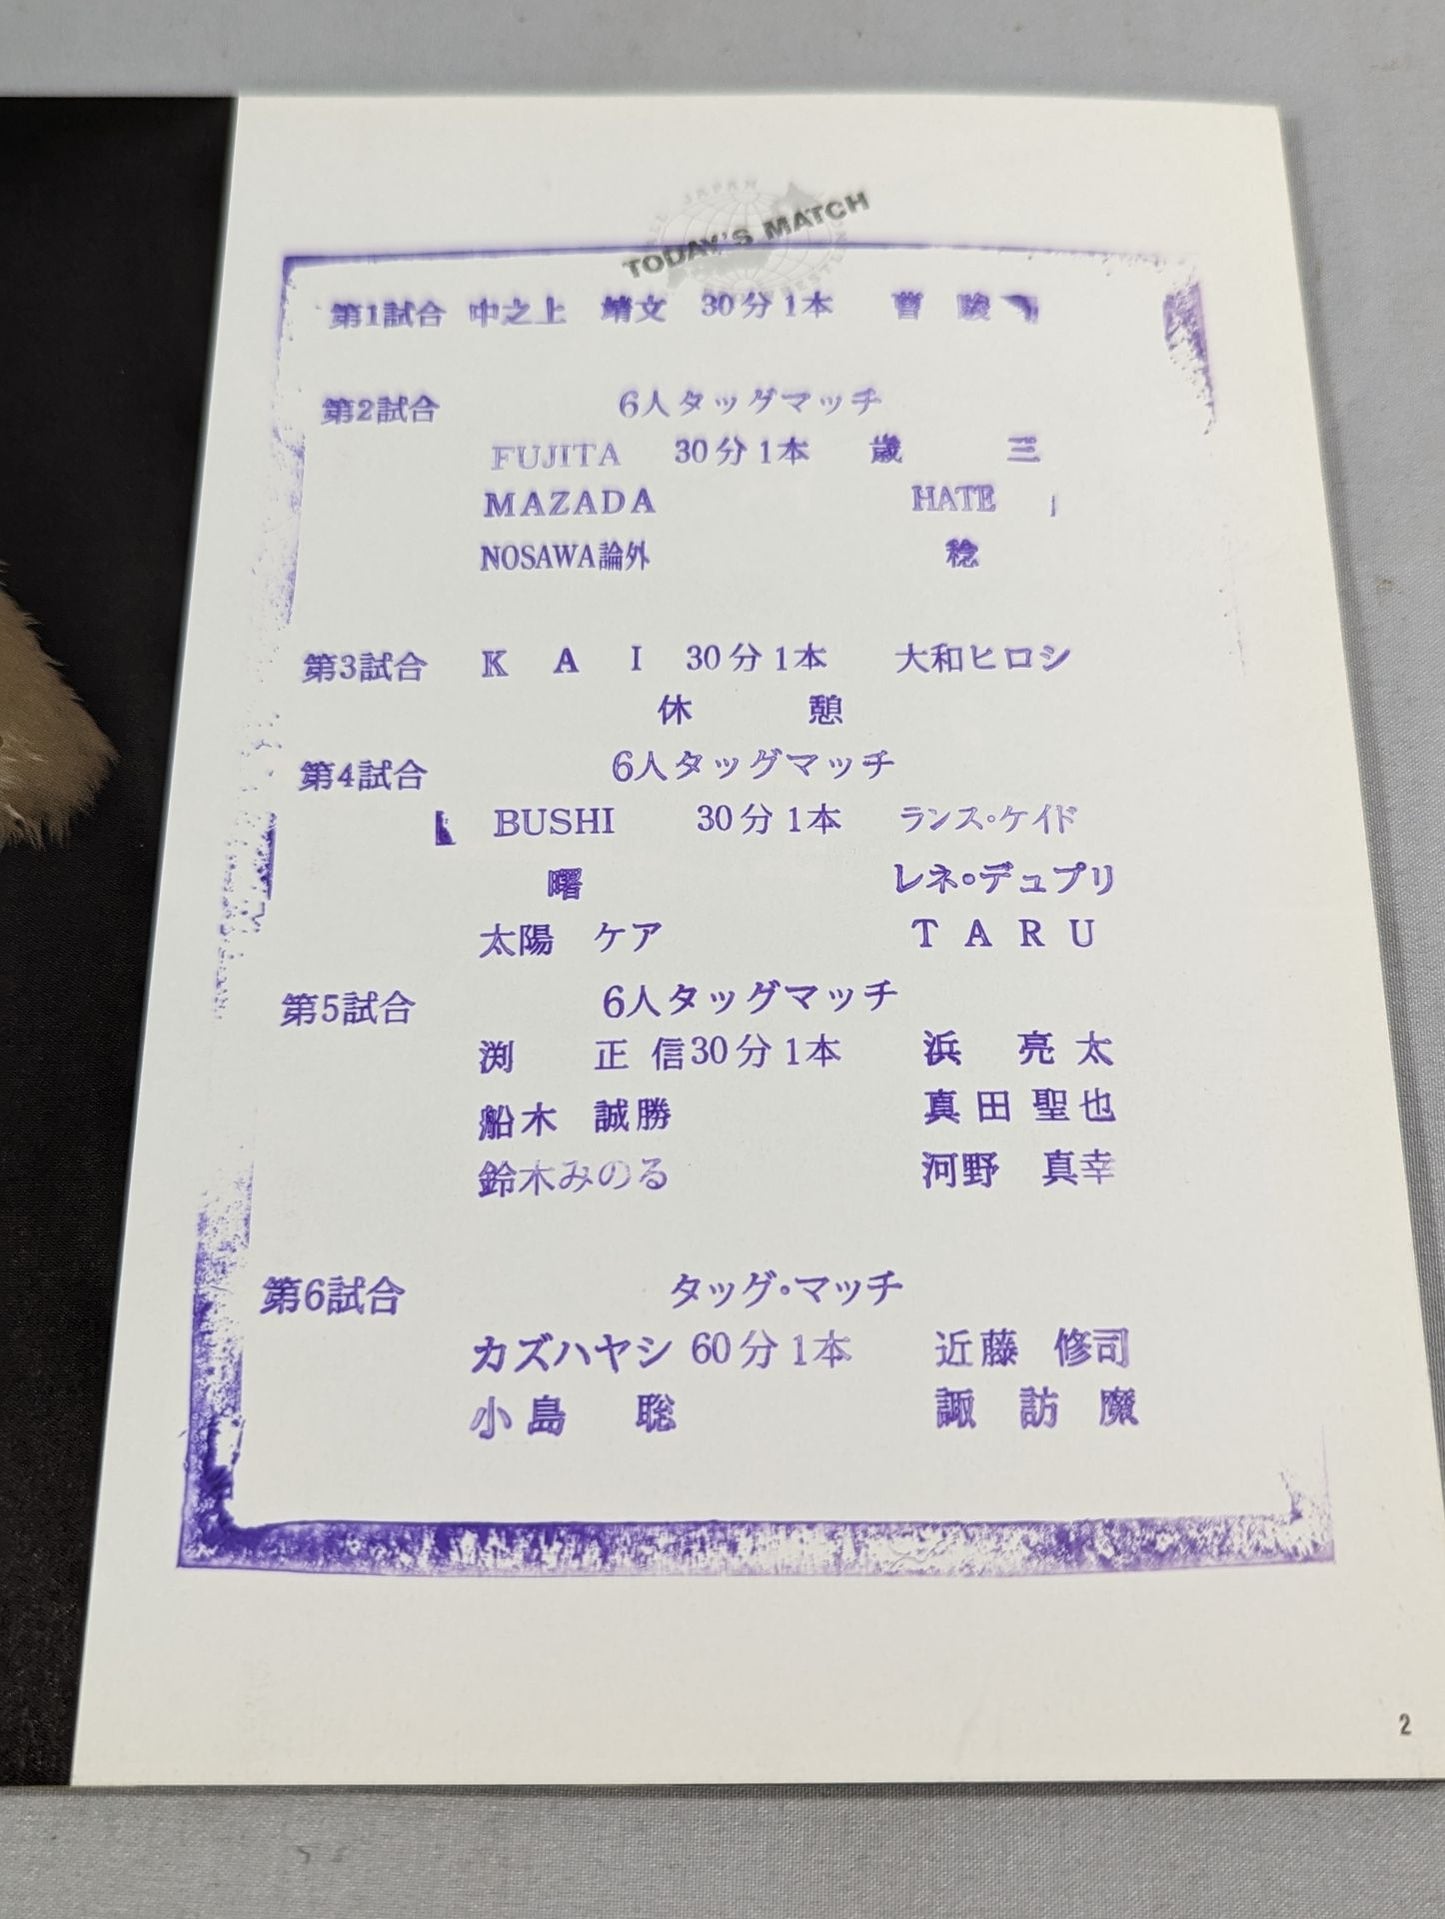 TODAY'S MATCH
第1試合 中之上 靖文 30分1本 曹 駿
第2試合 6人タッグマッチ
FUJITA 30分1本 歳 三
MAZADA HATE
NOSAWA論外 稔
第3試合 K A I 30分1本 大和ヒロシ
休 憩
第4試合 6人タッグマッチ
BUSHI 30分1本 ランス・ケイド
曙 レネ・デュプリ
太陽 ケア T A R U
第5試合 6人タッグマッチ
渕 正 信 30分1本 浜 亮 太
船木 誠勝 真田聖也
鈴木みのる 河野 真幸
第6試合 タッグ・マッチ
カズハヤシ 60分1本 近藤 修司
小島 聡 諏訪魔
2